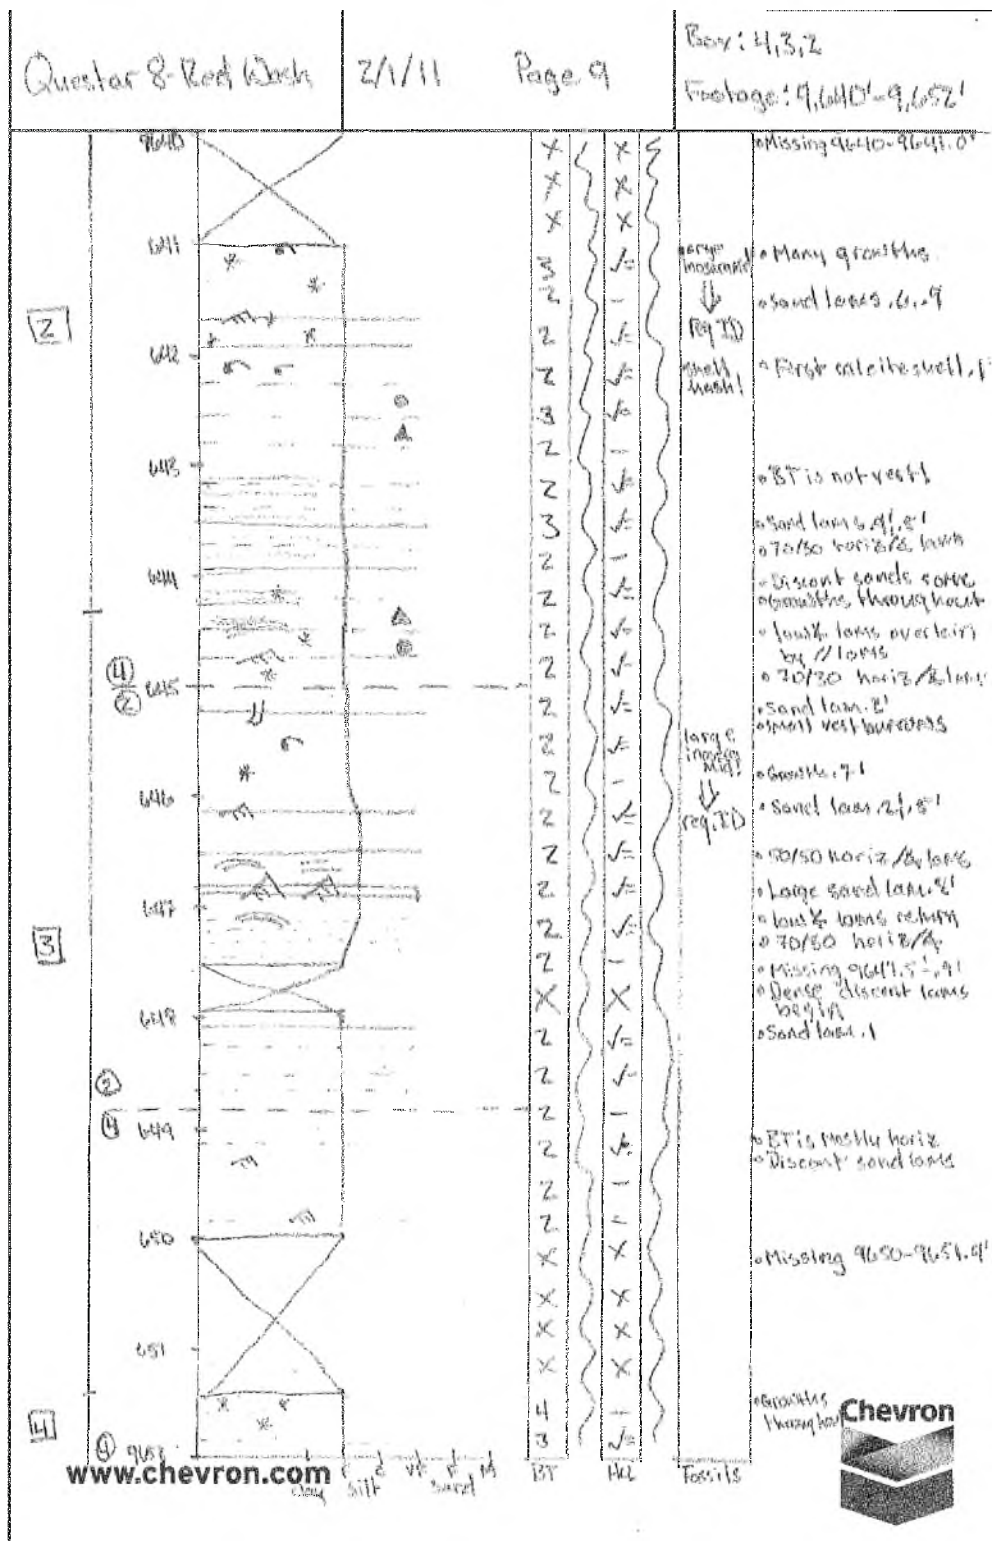 Questar 8-Red Wash
2/1/11
Page 9
Box: 4,3,2
Footage: 9,640'-9,652'
9640
641
642
643
644
645
646
647
648
649
650
651
9652
2
3
4
4
2
2
4
4
X X
X X
X X
3 √=
2 -
2 √=
2 √=
3 √=
2 -
2 √=
3 √=
2 -
2 √=
2 √=
2 √=
2 √=
2 √=
2 -
2 √=
2 √=
2 √=
2 √=
2 -
X X
2 √=
2 √=
2 -
2 √=
2 -
2 -
X X
X X
X X
X X
4 -
3 √=
large
⇓
req ID
shell
hash!
large
⇓
req. ID
Missing 9640-9641.0'
Many growths
Sand lams .6, .9
First calcite shell .1'
BT is not vert!
Sand lams
70/30 horiz/ lams
Discont sands some
Growths throughout
low lams overlain
by // lams
70/30 horiz/ lams
Sand lam .2'
small vert burrows
Growths .7'
Sand lam .2', .5'
50/50 horiz/ lams
Large sand lam .8'
low lams return
horiz/
Missing 9647.5'-.9'
Dense discont lams
begin
Sand lam .1
BT is mostly horiz
Discont sand lams
Missing 9650-9651.4'
Growths
throughout
Chevron
www.chevron.com
clay silt vf f m
sand
BT
HCl
Fossils